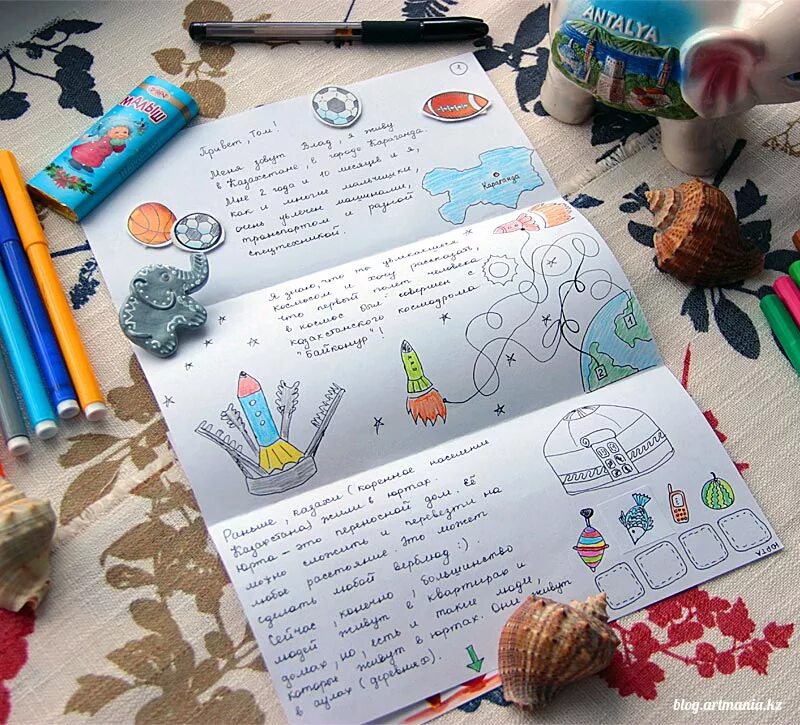 ANTALYA
МАЛЫШ
1
Привет, Том!
Меня зовут Влад, я живу
в Казахстане, в городе Караганда.
Мне 2 года и 10 месяцев и я,
как и многие мальчишки,
очень увлечен машинами,
транспортом и разной
спецтехникой.
Караганда
Я знаю, что ты увлекаешься
космосом и хочу рассказать,
что первый полет человека
в космос был совершен с
казахстанского космодрома
"Байконур"!
1
2
Раньше, казахи (коренное население
Казахстана) жили в юртах.
Юрта - это переносной дом. её
можно сложить и перевезти на
любое расстояние. Это может
сделать любой верблюд :).
Сейчас, конечно, большинство
людей живут в квартирах и
домах, но, есть и такие люди,
которые живут в юртах. Они живут
в аулах (деревнях).
ЮРТА
blog.artmania.kz